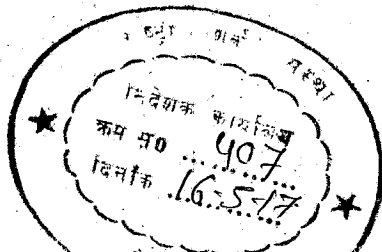 निदेशक कार्यालय
क्रम सं0 ......407......
दिनांक ..16-5-17....